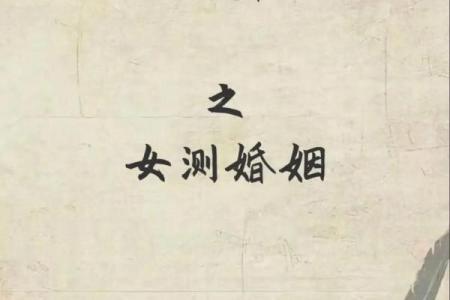 之
女测婚姻